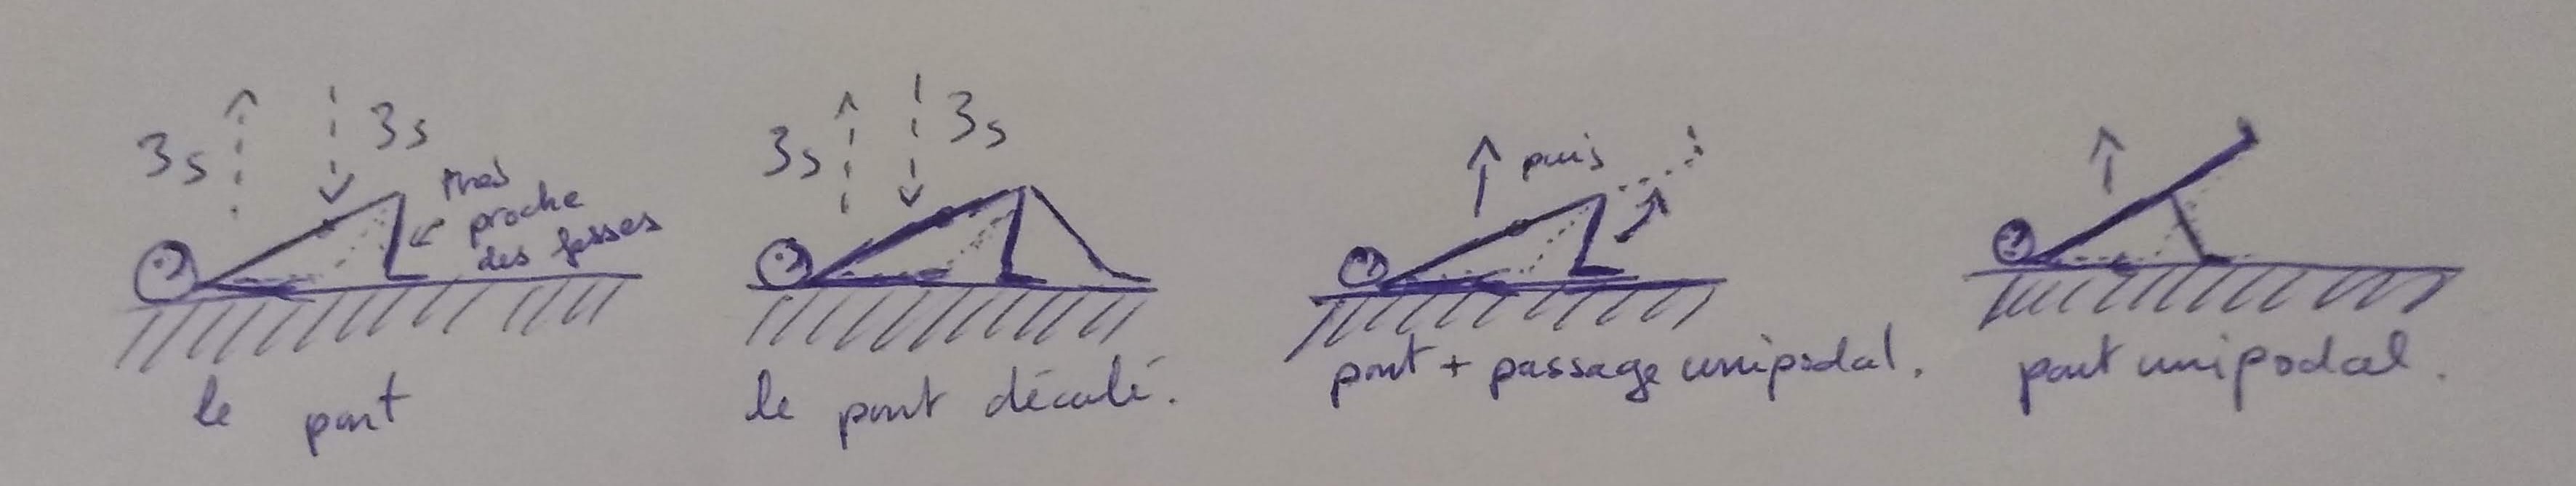 3s
3s
très
proche
des fesses
le pont
3s
3s
le pont décalé.
puis
pont + passage unipodal.
pont unipodal.